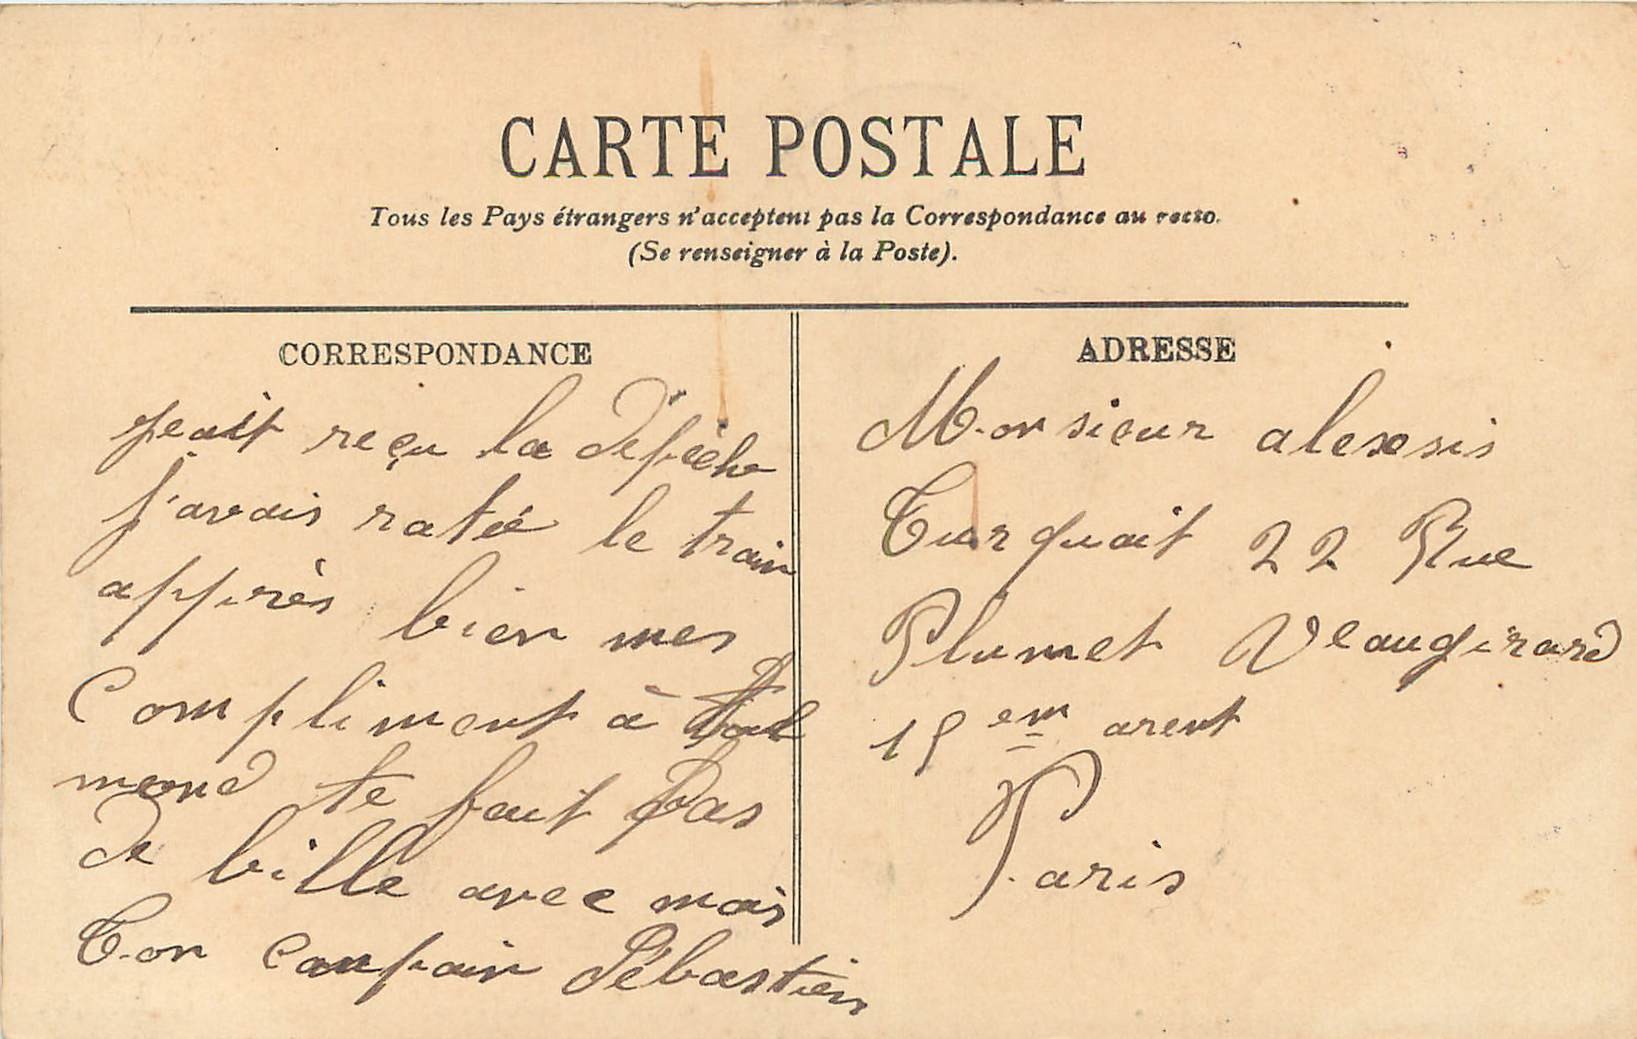 CARTE POSTALE
Tous les Pays étrangers n'acceptent pas la Correspondance au recto.
(Se renseigner à la Poste).
CORRESPONDANCE
reçu la dépèche
j'avais ratée le train
apprès bien mes
Compliment à tout
mond te fait pas
de bille avec mois
Ton Coupain Sébastien
ADRESSE
Monsieur alexsis
Turquait 22 Rue
Plumet Veaugirard
15 em arent
Paris